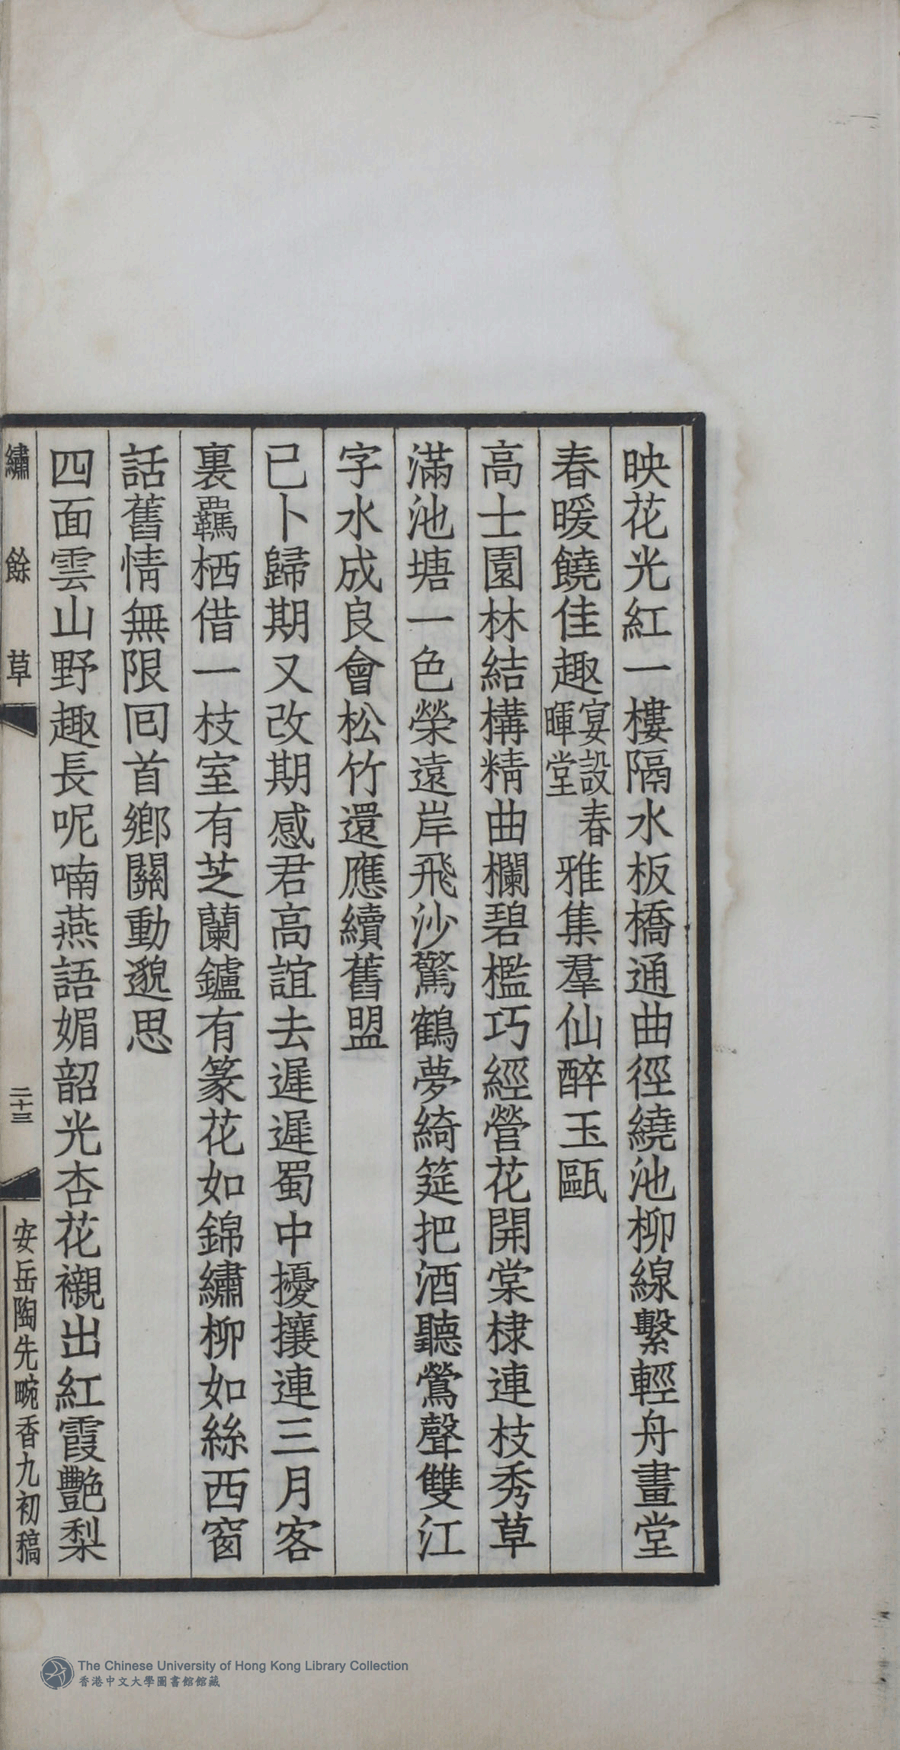 映花光紅一樓隔水板橋通曲徑繞池柳線繫輕舟畫堂
春暖饒佳趣宴設春暉堂雅集羣仙醉玉甌
高士園林結構精曲欄碧檻巧經營花開棠棣連枝秀草
滿池塘一色榮遠岸飛沙驚鶴夢綺筵把酒聽鶯聲雙江
字水成良會松竹還應續舊盟
已卜歸期又改期感君高誼去遲遲蜀中擾攘連三月客
裏羈栖借一枝室有芝蘭鑪有篆花如錦繡柳如絲西窗
話舊情無限囘首鄉關動邈思
四面雲山野趣長呢喃燕語媚韶光杏花襯出紅霞艷梨
繡餘草
二十三
安岳陶先畹香九初稿
The Chinese University of Hong Kong Library Collection
香港中文大學圖書館館藏